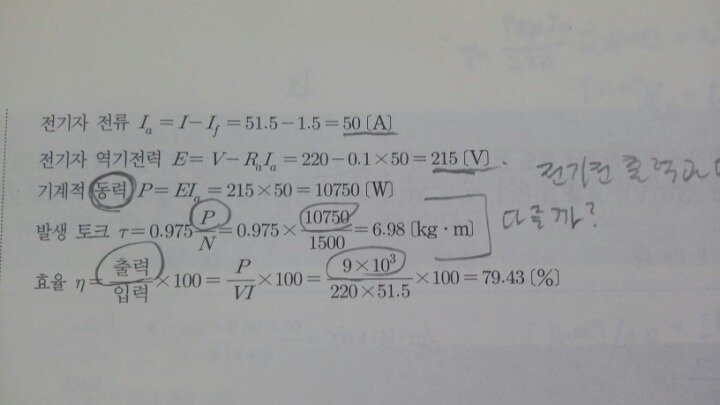 전기자 전류 I_a = I − I_f = 51.5 − 1.5 = 50 [A]
전기자 역기전력 E = V − R_a I_a = 220 − 0.1 × 50 = 215 [V]
기계적 동력 P = EI_a = 215 × 50 = 10750 [W]
발생 토크 τ = 0.975 P/N = 0.975 × 10750/1500 = 6.98 [kg·m]
다를까?
효율 η = 출력/입력 × 100 = P/VI × 100 = 9×10³/220×51.5 × 100 = 79.43 [%]